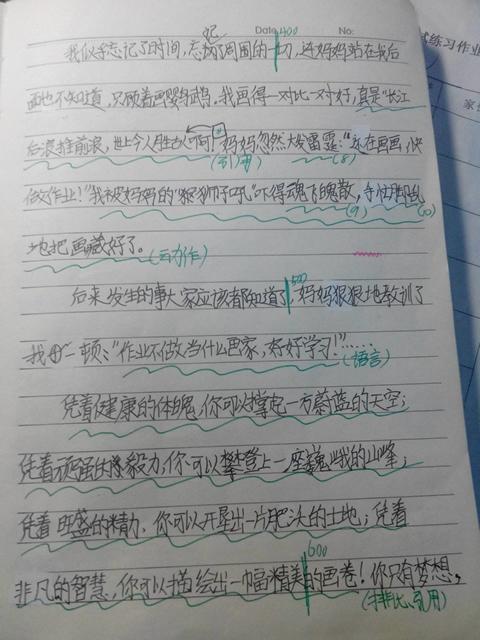 Date 400 No:
记
我似乎忘记了时间,忘记了周围的一切,连妈妈站在我后
面也不知道,只顾着画鹦鹉。我画得一对比一对好,真是"长江
后浪推前浪,世上今人胜古人"啊!妈妈忽然大发雷霆:"还在画画,快
(引用) (8)
做作业!"我被妈妈的"狮子吼"吓得魂飞魄散,手忙脚乱
(9) (10)
地把画藏好了。
(动作)
后来发生的事大家应该都知道了,妈妈狠狠地教训了
500
我一顿:"作业不做,当什么画家,好好学习!"……
(语言)
凭着健康的体魄,你可以撑起一方蔚蓝的天空;
凭着顽强的毅力,你可以攀登上一座巍峨的山峰;
凭着旺盛的精力,你可以开垦出一片肥沃的土地;凭着
600
非凡的智慧,你可以描绘出一幅精美的画卷!你只有梦想,
(排比、引用)
练习作业